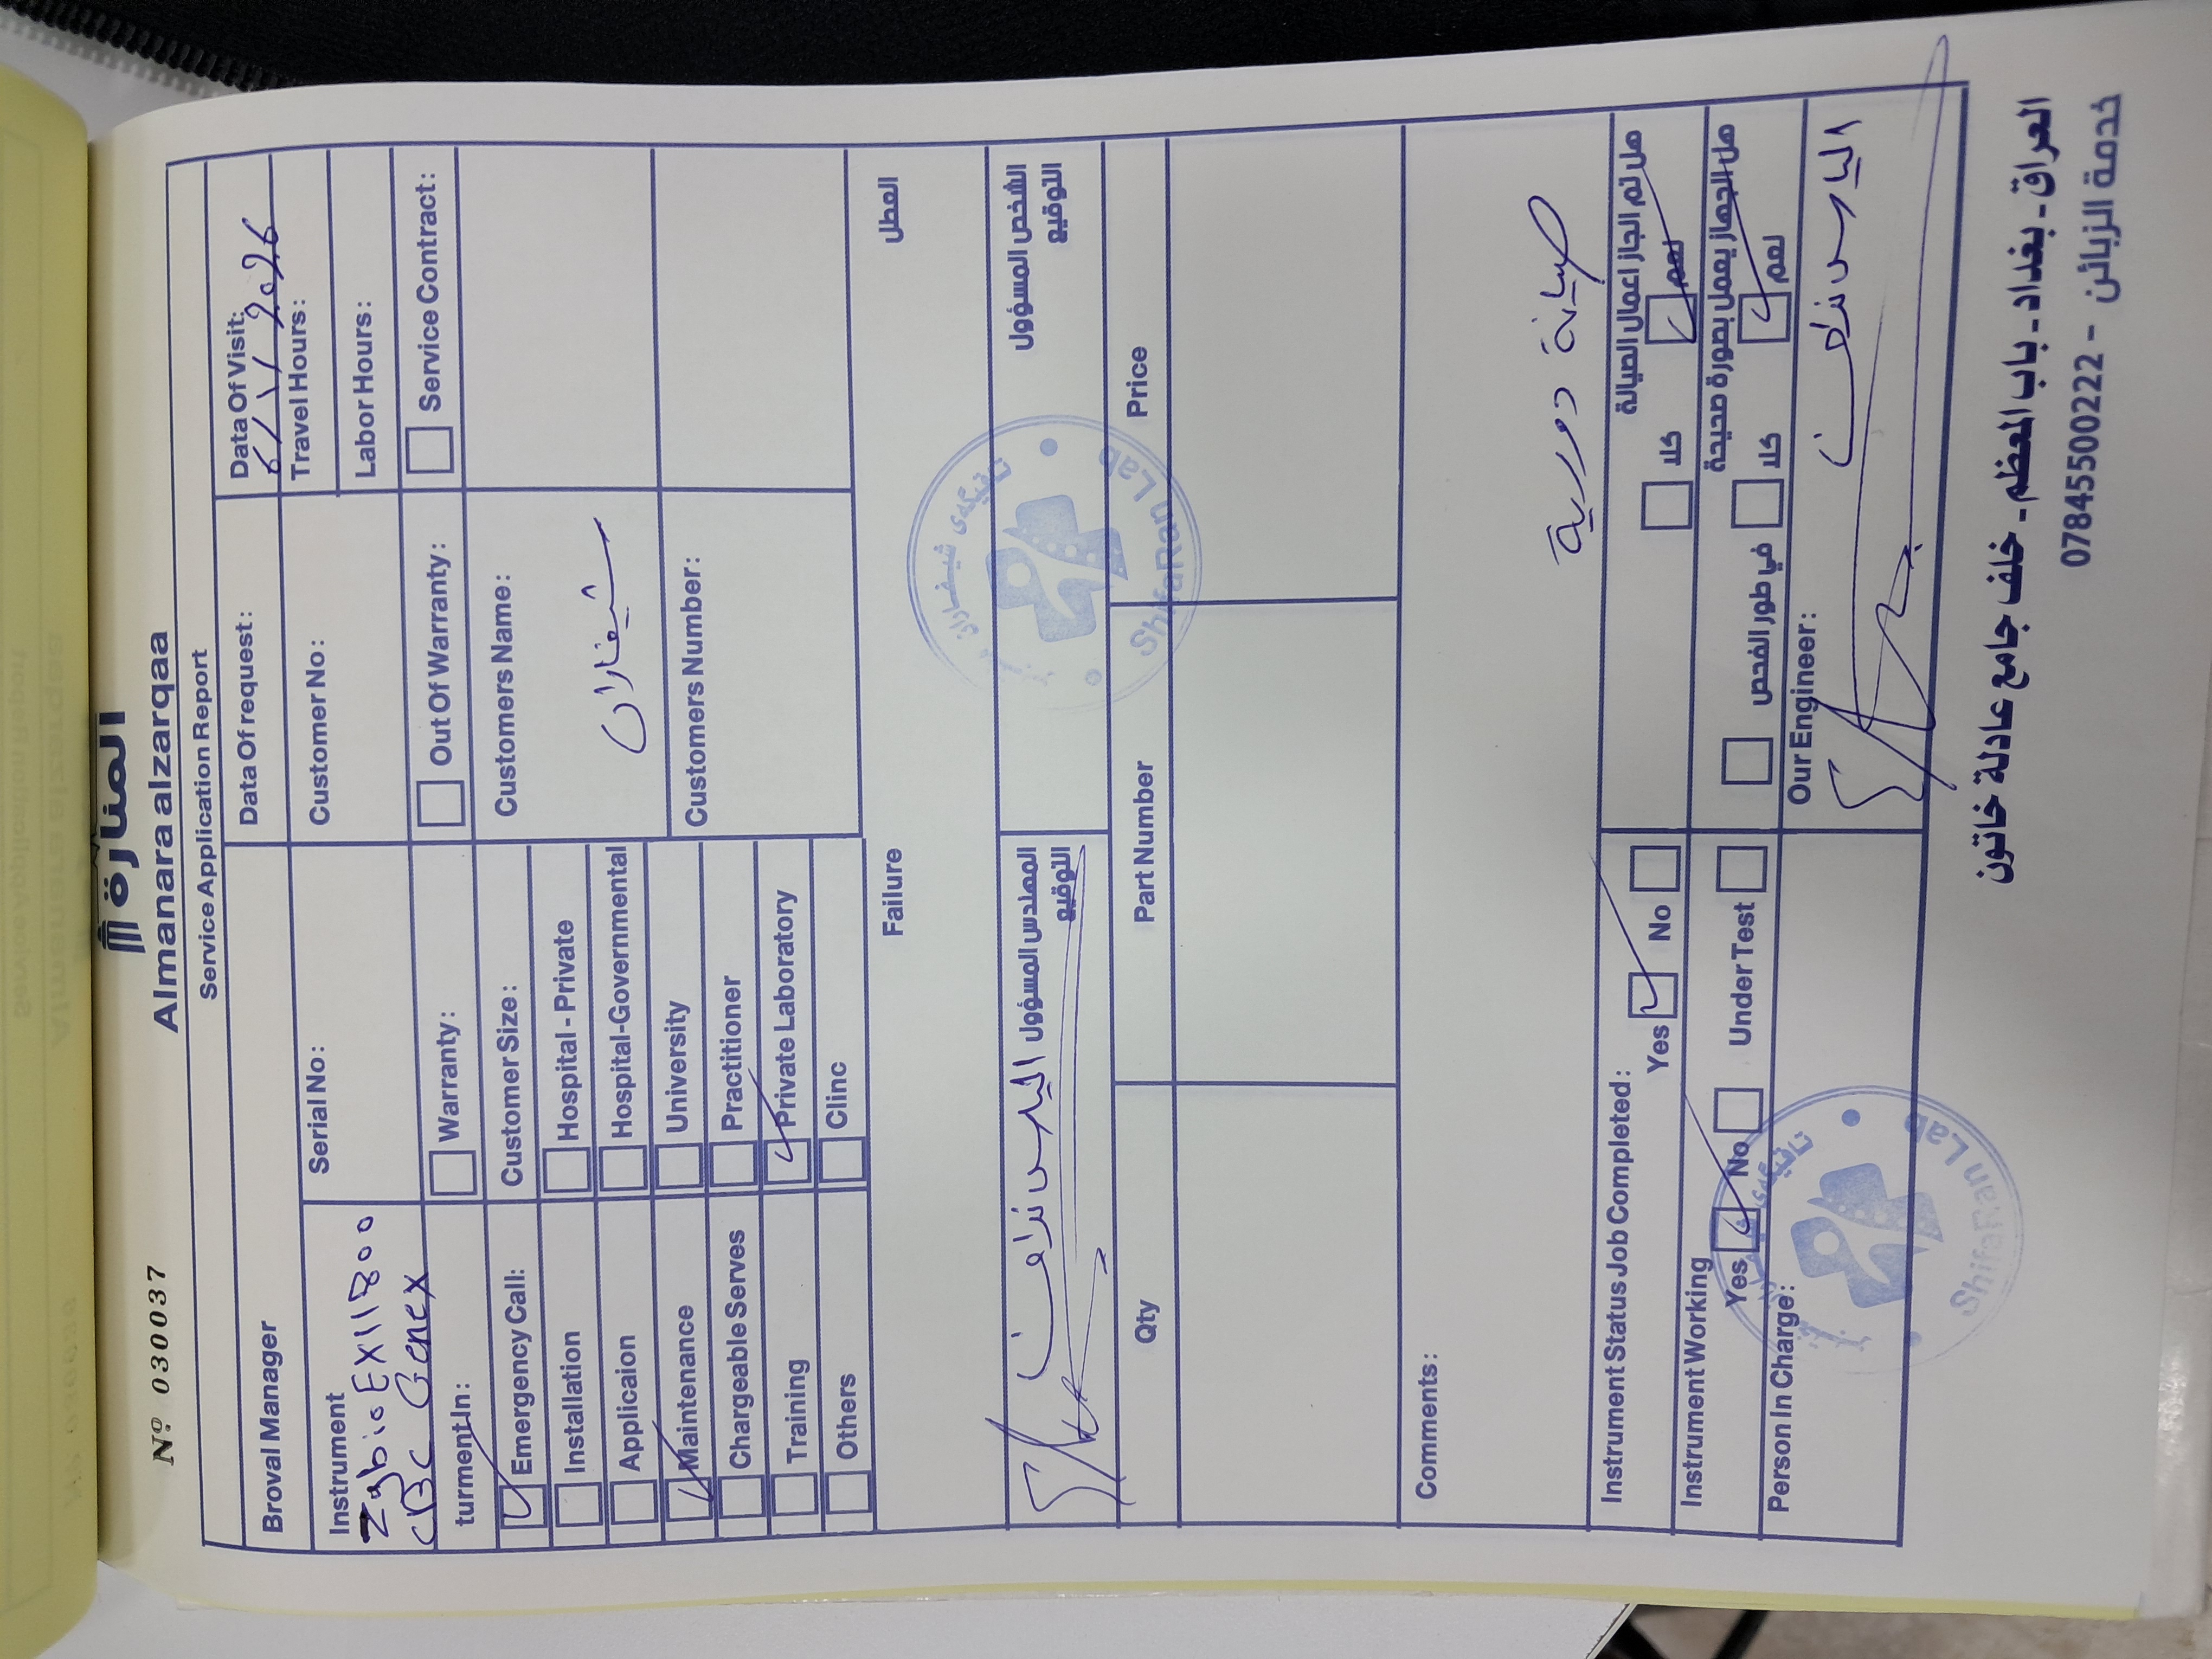 Nº 030037
المنارة
Almanara alzarqaa
Service Application Report
Broval Manager
Data Of request:
Data Of Visit:
6/1/2026
Instrument
Zybio EXI1800
CBC Genex
Serial No:
Customer No:
Travel Hours:
Labor Hours:
turment In:
Warranty:
Out Of Warranty:
Service Contract:
Emergency Call:
Installation
Applicaion
Maintenance
Chargeable Serves
Training
Others
Customer Size:
Hospital - Private
Hospital-Governmental
University
Practitioner
Private Laboratory
Clinc
Customers Name:
شيفاران
Customers Number:
Failure
العطل
المهندس المسؤول
التوقيع
الشخص المسؤول
التوقيع
تاقیگەی شیفاران
ShifaRan Lab
Qty
Part Number
Price
Comments:
صيانة دورية
Instrument Status Job Completed:
Yes
No
هل تم انجاز اعمال الصيانة
نعم
كلا
Instrument Working
Yes
No
Under Test
هل الجهاز يعمل بصورة صحيحة
نعم
كلا
في طور الفحص
Person In Charge:
Our Engineer:
ShifaRan Lab
العراق - بغداد - باب المعظم - خلف جامع عادلة خاتون
خدمة الزبائن - 07845500222